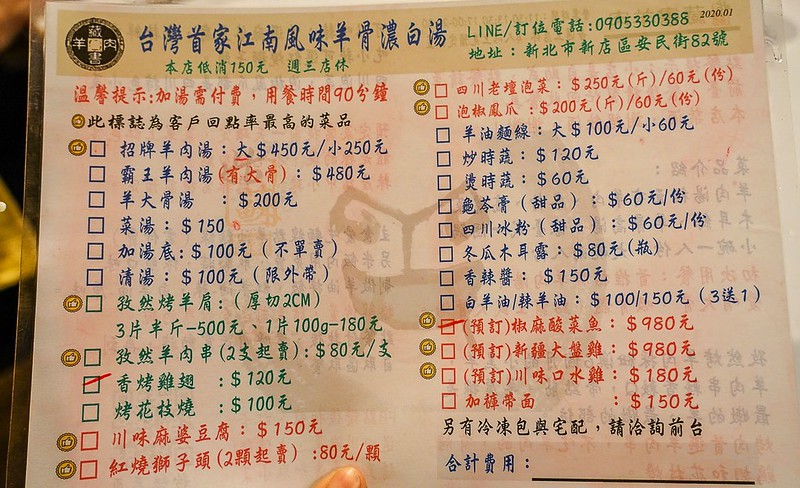 藏書羊肉
台灣首家江南風味羊骨濃白湯
本店低消150元 週三店休
2020.01
LINE/訂位電話:0905330388
地址:新北市新店區安民街82號
溫馨提示:加湯需付費,用餐時間90分鐘
此標誌為客戶回點率最高的菜品
招牌羊肉湯:大$450元/小250元
霸王羊肉湯(有大骨):$480元
羊大骨湯 :$200元
菜湯:$150
加湯底:$100元(不單賣)
清湯:$100元(限外帶)
孜然烤羊肩:(厚切2CM)
3片半斤-500元、1片100g-180元
孜然羊肉串(2支起賣):$80元/支
香烤雞翅 :$120元
烤花枝燒 :$100元
川味麻婆豆腐:$150元
紅燒獅子頭(2顆起賣):80元/顆
四川老壇泡菜:$250元(斤)/60元(份)
泡椒鳳爪:$200元(斤)/60元(份)
羊油麵線:大$100元/小60元
炒時蔬:$120元
燙時蔬:$60元
龜苓膏(甜品):$60元/份
四川冰粉(甜品):$60元/份
冬瓜木耳露:$80元(瓶)
香辣醬 :$150元
白羊油/辣羊油:$100/150元(3送1)
(預訂)椒麻酸菜魚:$980元
(預訂)新疆大盤雞:$980元
(預訂)川味口水雞:$180元
加褲帶面 :$150元
另有冷凍包與宅配,請洽詢前台
合計費用: